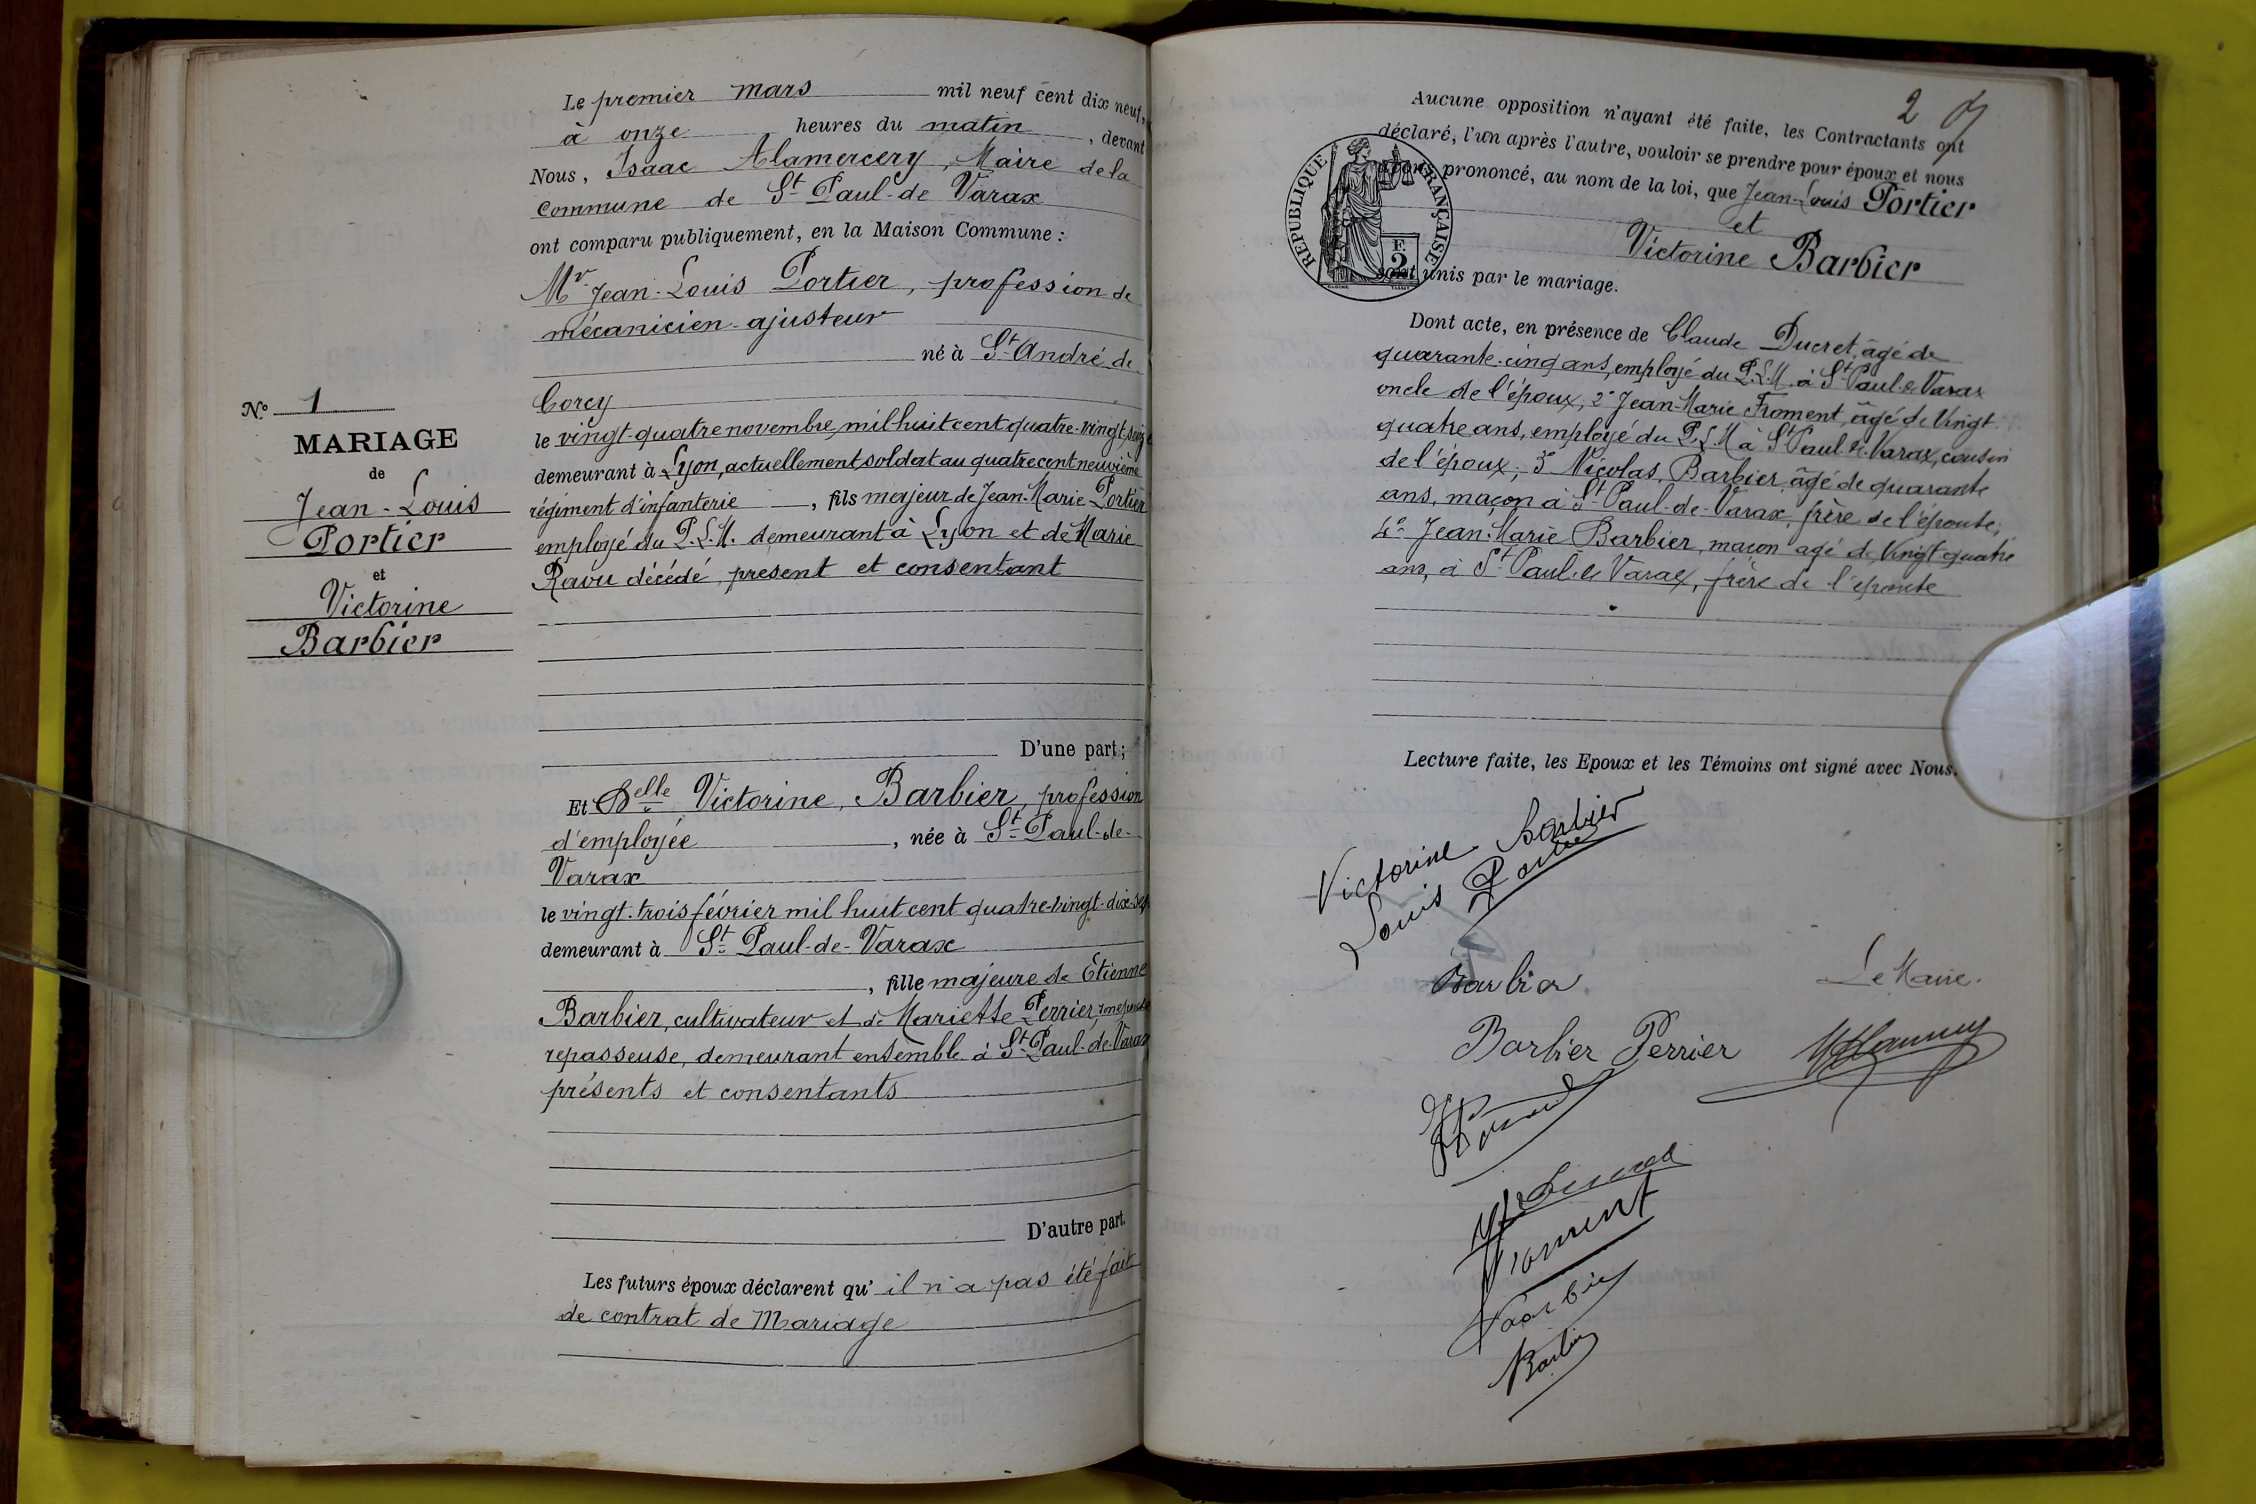 Le premier mars mil neuf cent dix neuf,
à onze heures du matin, devant
Nous, Isaac Alamercery, Maire de la
Commune de St Paul-de Varax
ont comparu publiquement, en la Maison Commune :
Mr Jean-Louis Portier, profession de
mécanicien-ajusteur
né à St André de
Corcy
le vingt-quatre novembre mil huit cent quatre-vingt seize
demeurant à Lyon, actuellement soldat au quatre cent neuvième
régiment d'infanterie, fils majeur de Jean-Marie Portier
employé du P.L.M. demeurant à Lyon et de Marie
Ravu décédé, présent et consentant
No 1
MARIAGE
de
Jean-Louis
Portier
et
Victorine
Barbier
D'une part ;
Et Delle Victorine Barbier, profession
d'employée, née à St Paul-de-
Varax
le vingt-trois février mil huit cent quatre-vingt-dix-sept
demeurant à St Paul-de-Varax
, fille majeure de Etienne
Barbier, cultivateur et de Mariette Perrier
repasseuse, demeurant ensemble à St Paul-de-Varax
présents et consentants
D'autre part.
Les futurs époux déclarent qu'il n'a pas été fait
de contrat de Mariage
2
Aucune opposition n'ayant été faite, les Contractants ont
déclaré, l'un après l'autre, vouloir se prendre pour époux et nous
avons prononcé, au nom de la loi, que Jean-Louis Portier
et
Victorine Barbier
sont unis par le mariage.
RÉPUBLIQUE FRANÇAISE
F.
2
Dont acte, en présence de Claude Ducret, âgé de
quarante-cinq ans, employé du P.L.M. à St Paul de Varax
oncle de l'époux, 2° Jean-Marie Froment, âgé de vingt-
quatre ans, employé du P.L.M à St Paul de Varax, cousin
de l'époux ; 3° Nicolas Barbier âgé de quarante
ans, maçon à St Paul-de-Varax, frère de l'épouse ;
4° Jean-Marie Barbier, maçon agé de vingt quatre
ans, à St Paul de Varax, frère de l'épouse
Lecture faite, les Epoux et les Témoins ont signé avec Nous.
Victorine Barbier
Louis Portier
Barbier
Le Maire.
Barbier Perrier
Ducret
Froment
Barbier
Barbier